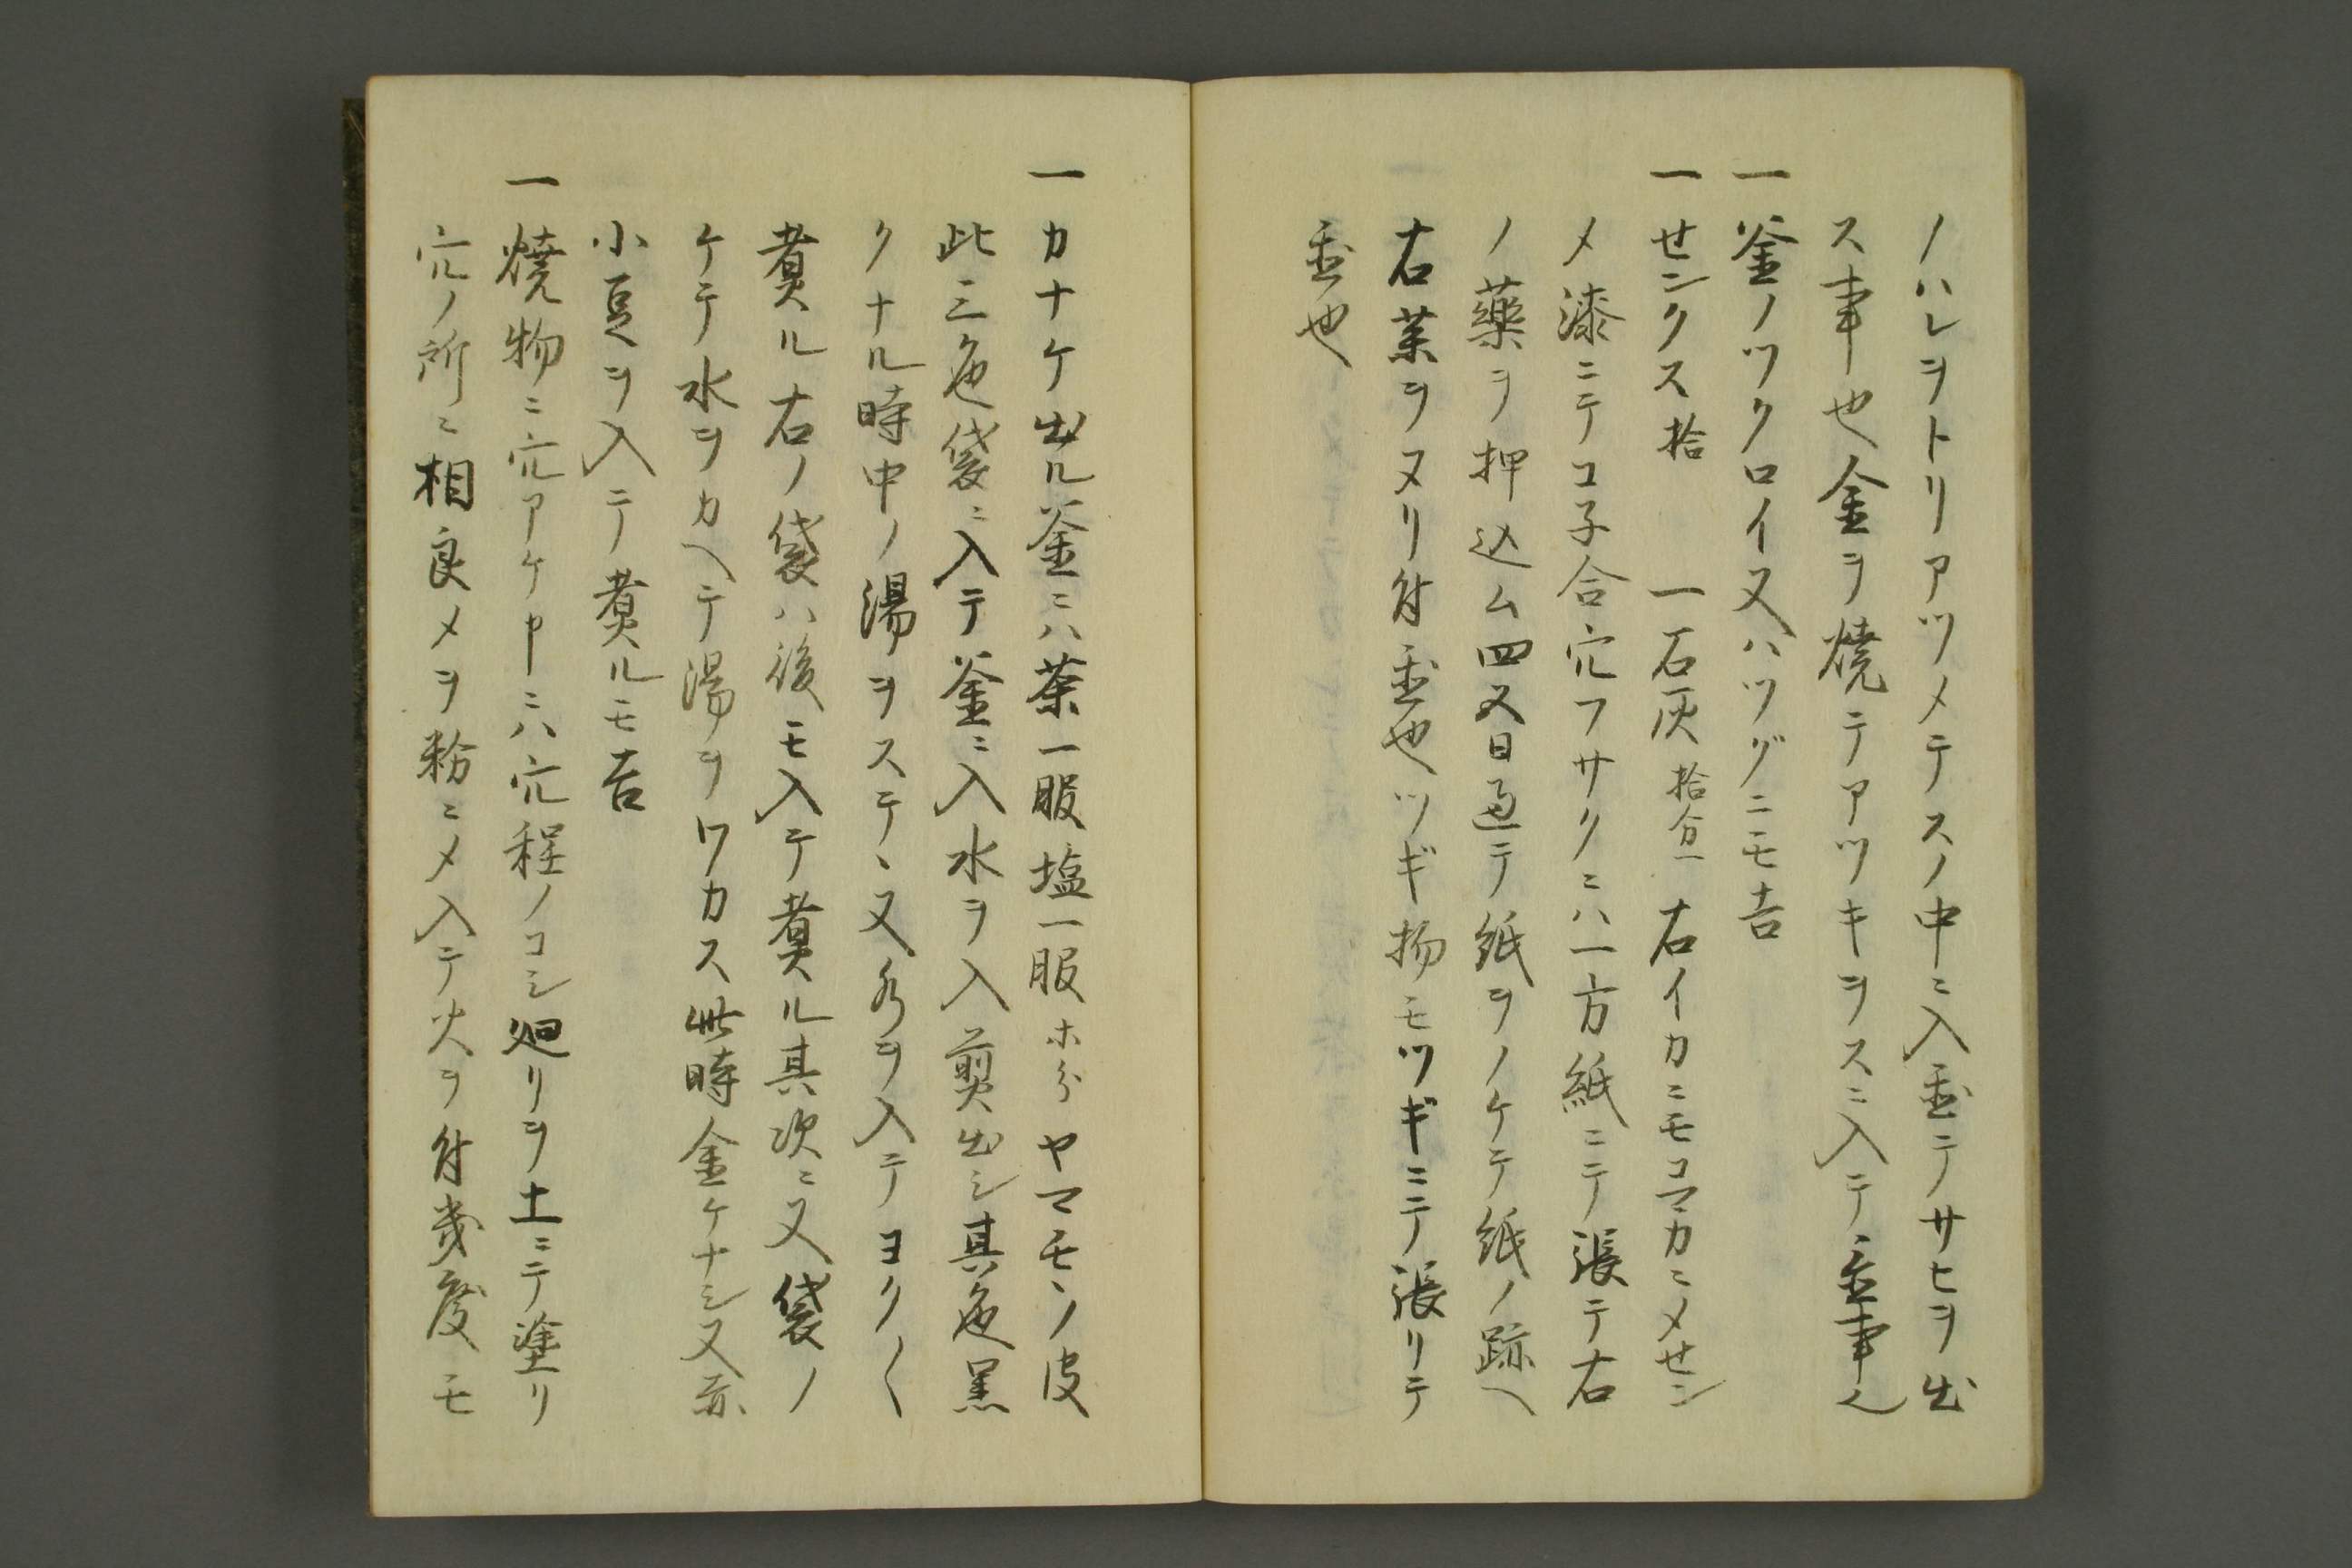 ノハレヲトリアツメテスノ中ニ入置テサヒヲ出
ス事也金ヲ焼テアツキヲスニ入テ置事也
一釜ノツクロイ又ハツグニモ吉
一センクス拾 一石灰拾分一 右イカニモコマカニメセン
メ漆ニテコ子合穴フサクニハ一方紙ニテ張テ右
ノ藥ヲ押込ム四五日過テ紙ヲノケテ紙ノ跡ヘ
右薬ヲヌリ付置也ツギ物モツギニテ張リテ
置也
一カナケ出ル釜ニハ茶一服塩一服ホトヤマモヽノ皮
此三色袋ニ入テ釜ニ入水ヲ入煎出シ其色黒
クナル時中ノ湯ヲステヽ又水ヲ入テヨク〱
煮ル右ノ袋ハ後モ入テ煮ル其次ニ又袋ノ
ケテ水ヲカヘテ湯ヲワカス此時金ケナシ又赤
小豆ヲ入テ煮ルモ吉
一焼物ニ穴アケ申ニハ穴程ノコシ廻リヲ土ニテ塗リ
穴ノ所ニ相良メヲ粉ニメ入テ火ヲ付幾度モ